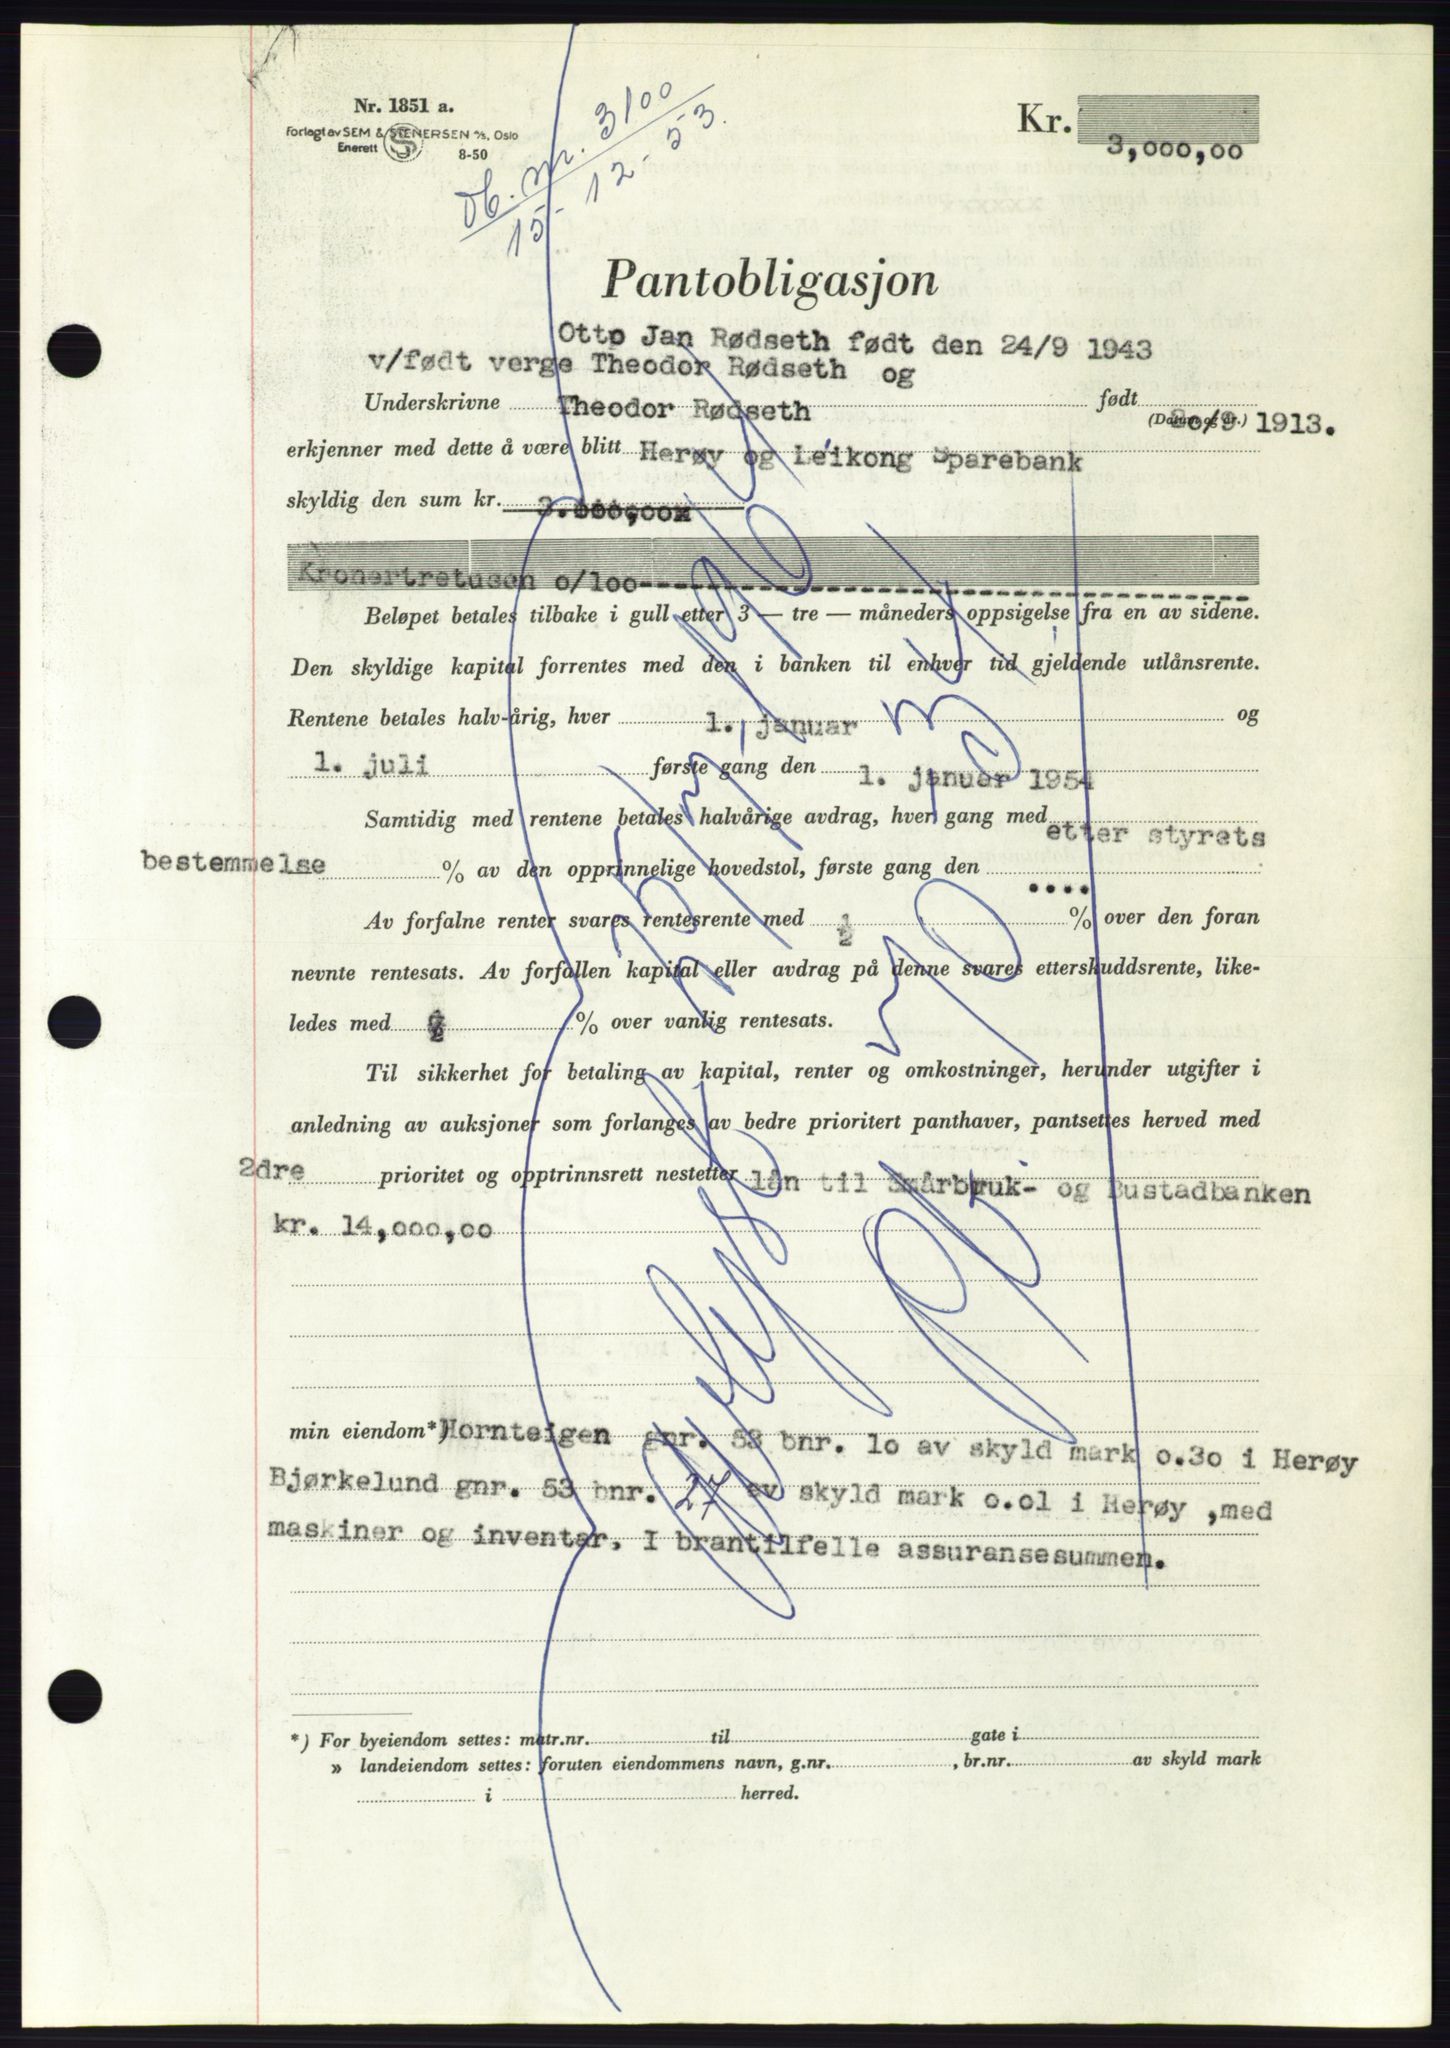 Nr. 1851 a.
Forlagt av SEM & STENERSEN A/S, Oslo
Enerett
8-50
Db. nr. 3100
15-12-53.
Kr.
3,000,00
Pantobligasjon
Otto Jan Rødseth født den 24/9 1943
v/født verge Theodor Rødseth og
Underskrivne Theodor Rødseth født
(Datum og år.) 1913.
erkjenner med dette å være blitt Herøy og Leikong Sparebank
skyldig den sum kr. 3.000,00x
Kronertretusen o/loo------------------------
Beløpet betales tilbake i gull etter 3 — tre — måneders oppsigelse fra en av sidene.
Den skyldige kapital forrentes med den i banken til enhver tid gjeldende utlånsrente.
Rentene betales halv-årig, hver 1. januar og
1. juli første gang den 1. januar 1954
Samtidig med rentene betales halvårige avdrag, hver gang med etter styrets
bestemmelse % av den opprinnelige hovedstol, første gang den ....
Av forfalne renter svares rentesrente med ½ % over den foran
nevnte rentesats. Av forfallen kapital eller avdrag på denne svares etterskuddsrente, like-
ledes med % over vanlig rentesats.
Til sikkerhet for betaling av kapital, renter og omkostninger, herunder utgifter i
anledning av auksjoner som forlanges av bedre prioritert panthaver, pantsettes herved med
2dre prioritet og opptrinnsrett nestetter lån til Småbruk- og Bustadbanken
kr. 14,000,00
min eiendom*) Hornteigen gnr. 53 bnr. lo av skyld mark o.3o i Herøy
Bjørkelund gnr. 53 bnr. 27 av skyld mark o.ol i Herøy ,med
maskiner og inventar. I brantilfelle assuransesummen.
*) For byeiendom settes: matr.nr. til gate i
» landeiendom settes: foruten eiendommens navn, g.nr. , br.nr. av skyld mark
i herred.